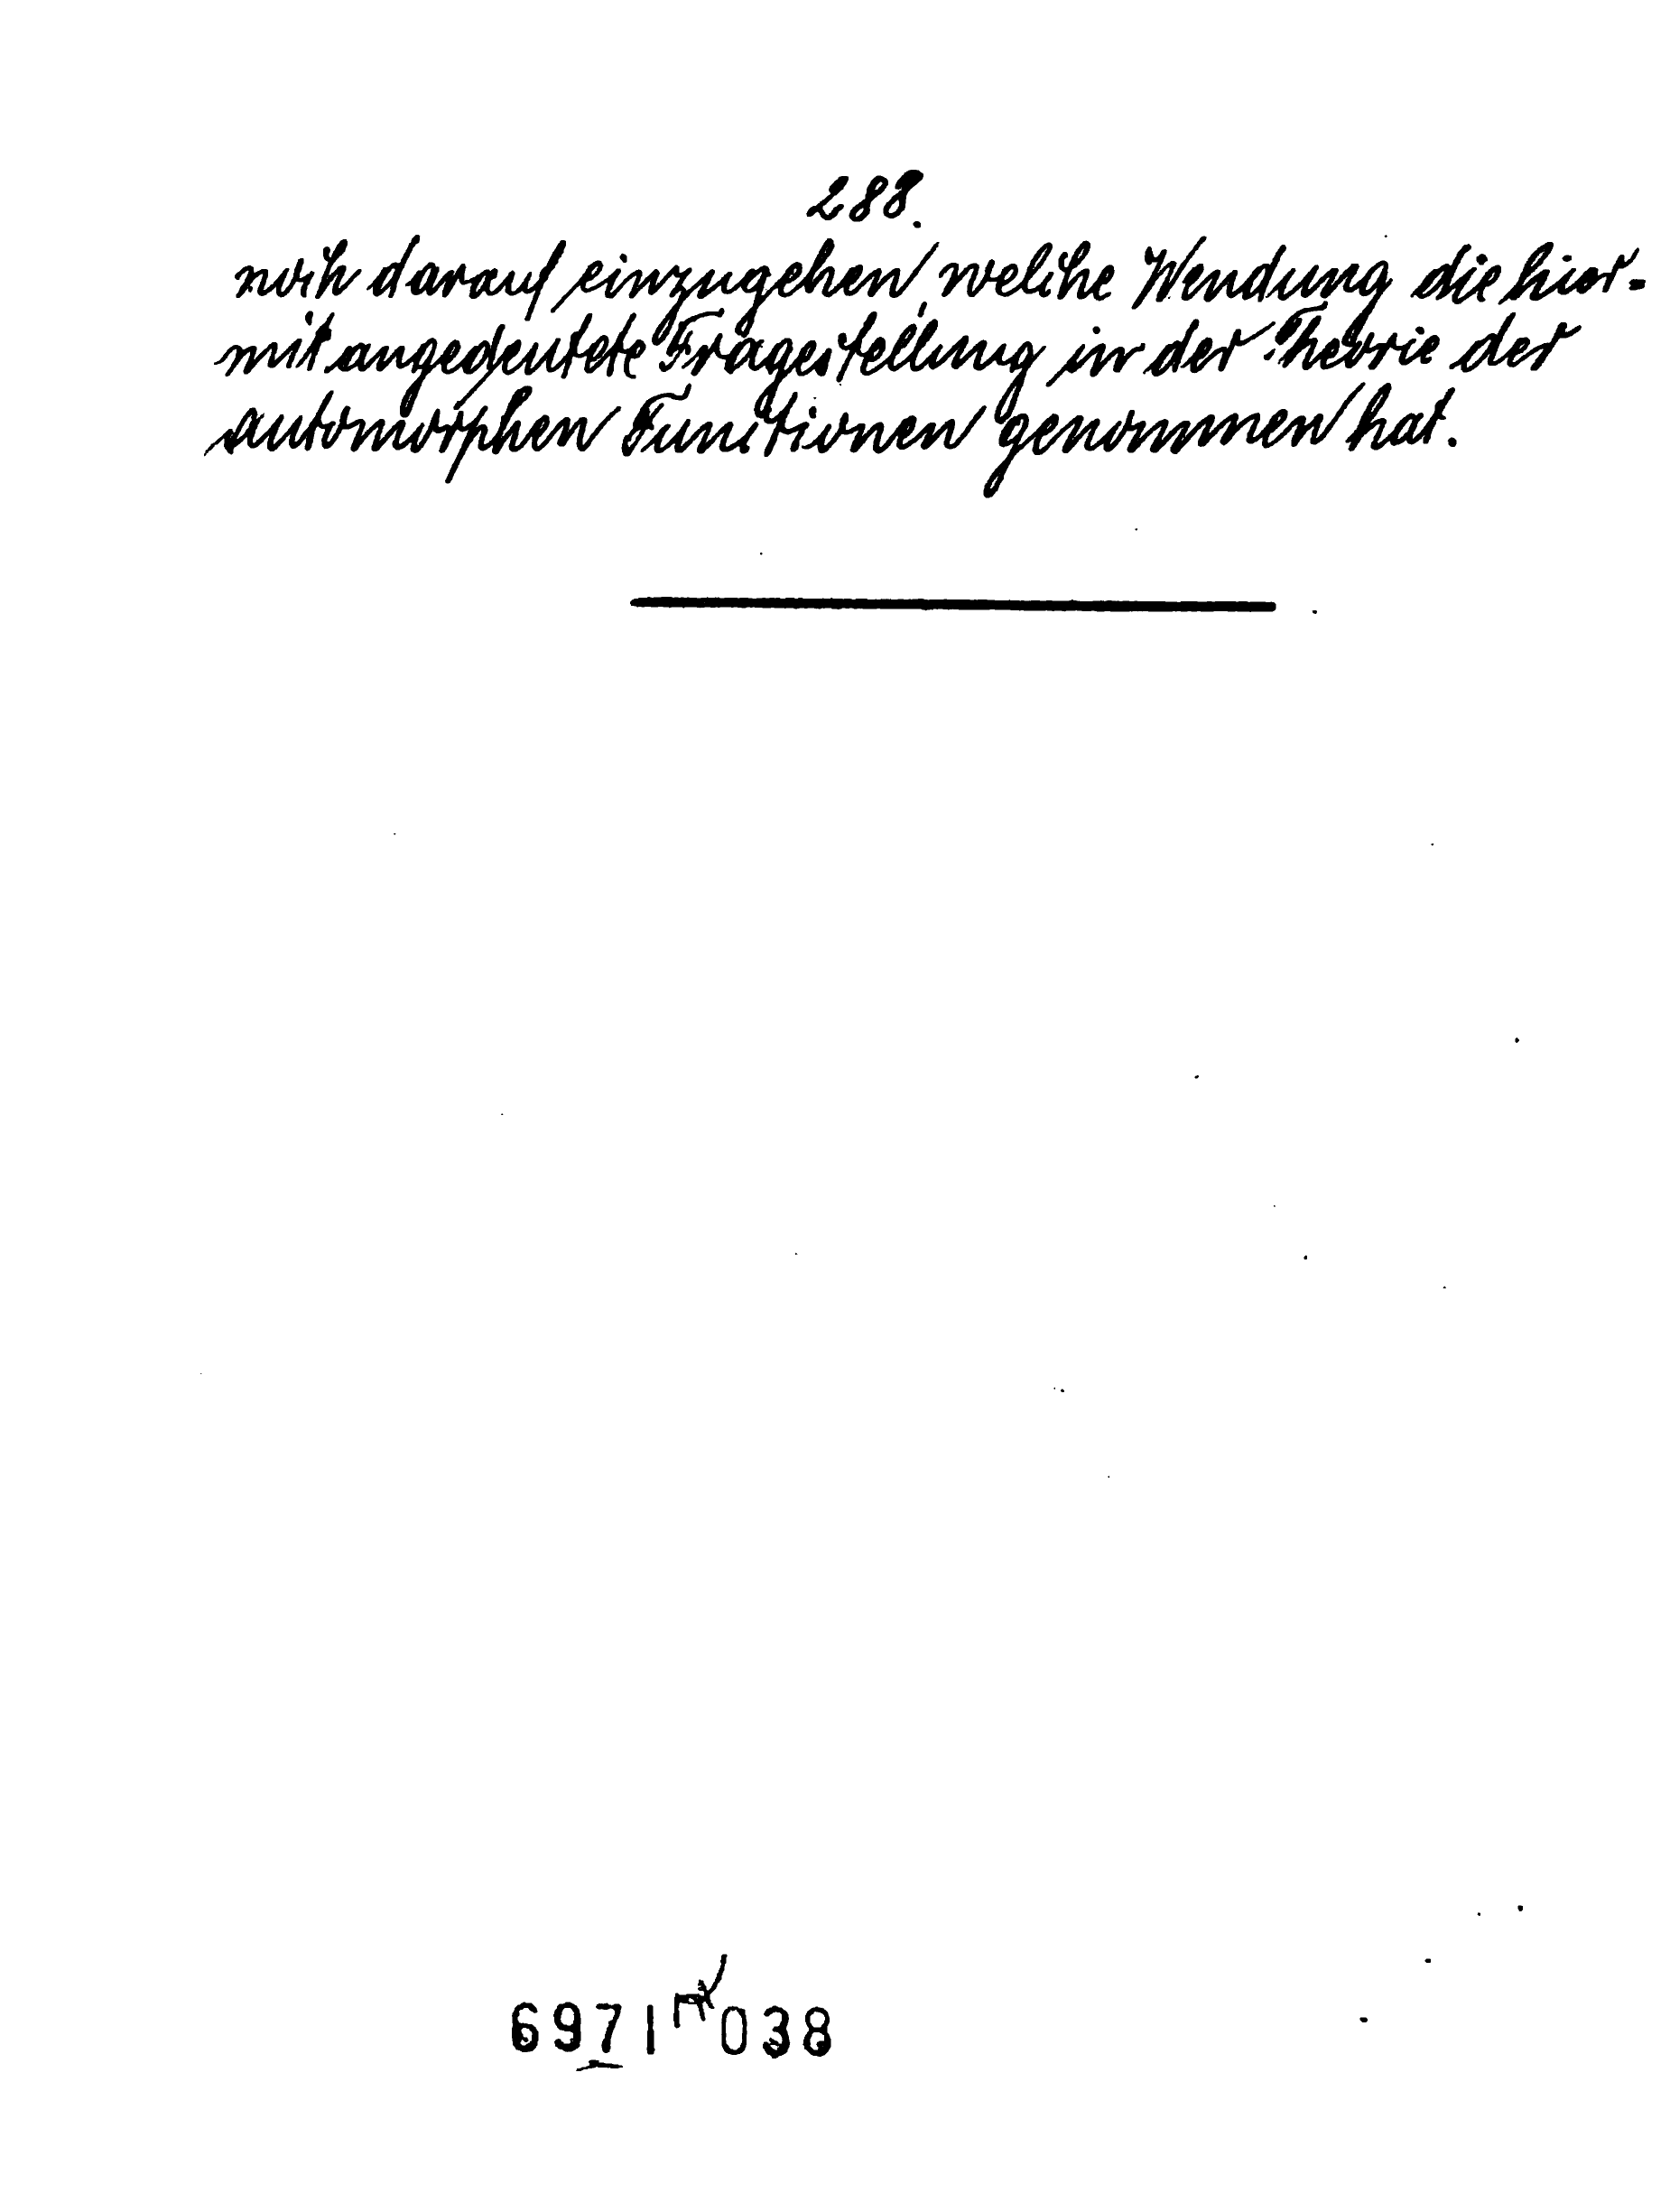 288.
noch darauf einzugehen, welche Wendung die hier-
mit angedeutete Fragestellung in der Theorie der
automorphen Functionen genommen hat.
6971 038